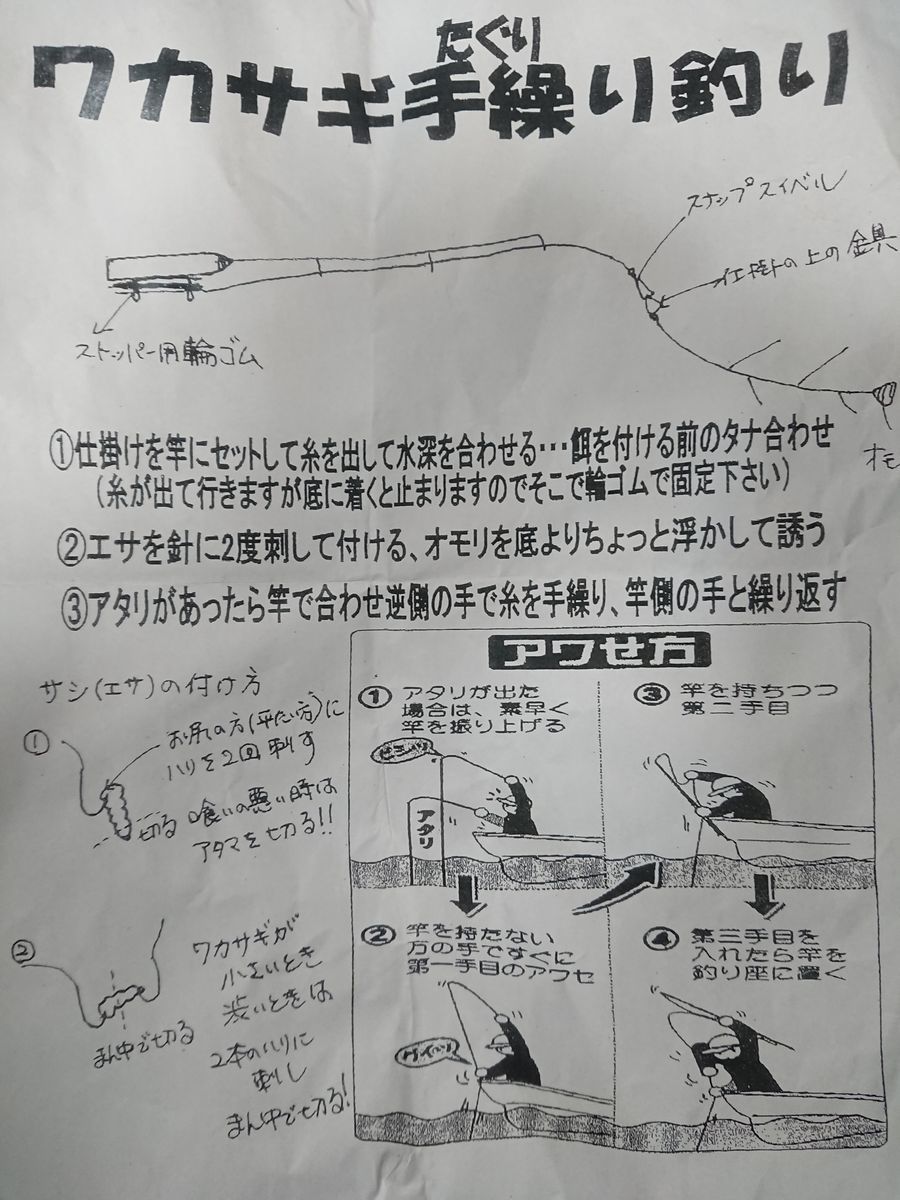 たぐり
ワカサギ手繰り釣り
スナップスイベル
仕掛の上の金具
ストッパー用輪ゴム
オモ
①仕掛けを竿にセットして糸を出して水深を合わせる…餌を付ける前のタナ合わせ
（糸が出て行きますが底に着くと止まりますのでそこで輪ゴムで固定下さい）
②エサを針に2度刺して付ける、オモリを底よりちょっと浮かして誘う
③アタリがあったら竿で合わせ逆側の手で糸を手繰り、竿側の手と繰り返す
サシ(エサ)の付け方
①
お尻の方(平たい方)に
ハリを2回刺す
切る
喰いの悪い時は
アタマを切る!!
②
まん中で切る
ワカサギが
小さいとき
渋いときは
2本のハリに
刺し
まん中で切る!
アワせ方
① アタリが出た
場合は、素早く
竿を振り上げる
アタリ
② 竿を持たない
方の手ですぐに
第一手目のアワセ
③ 竿を持ちつつ
第二手目
④ 第三手目を
入れたら竿を
釣り座に置く